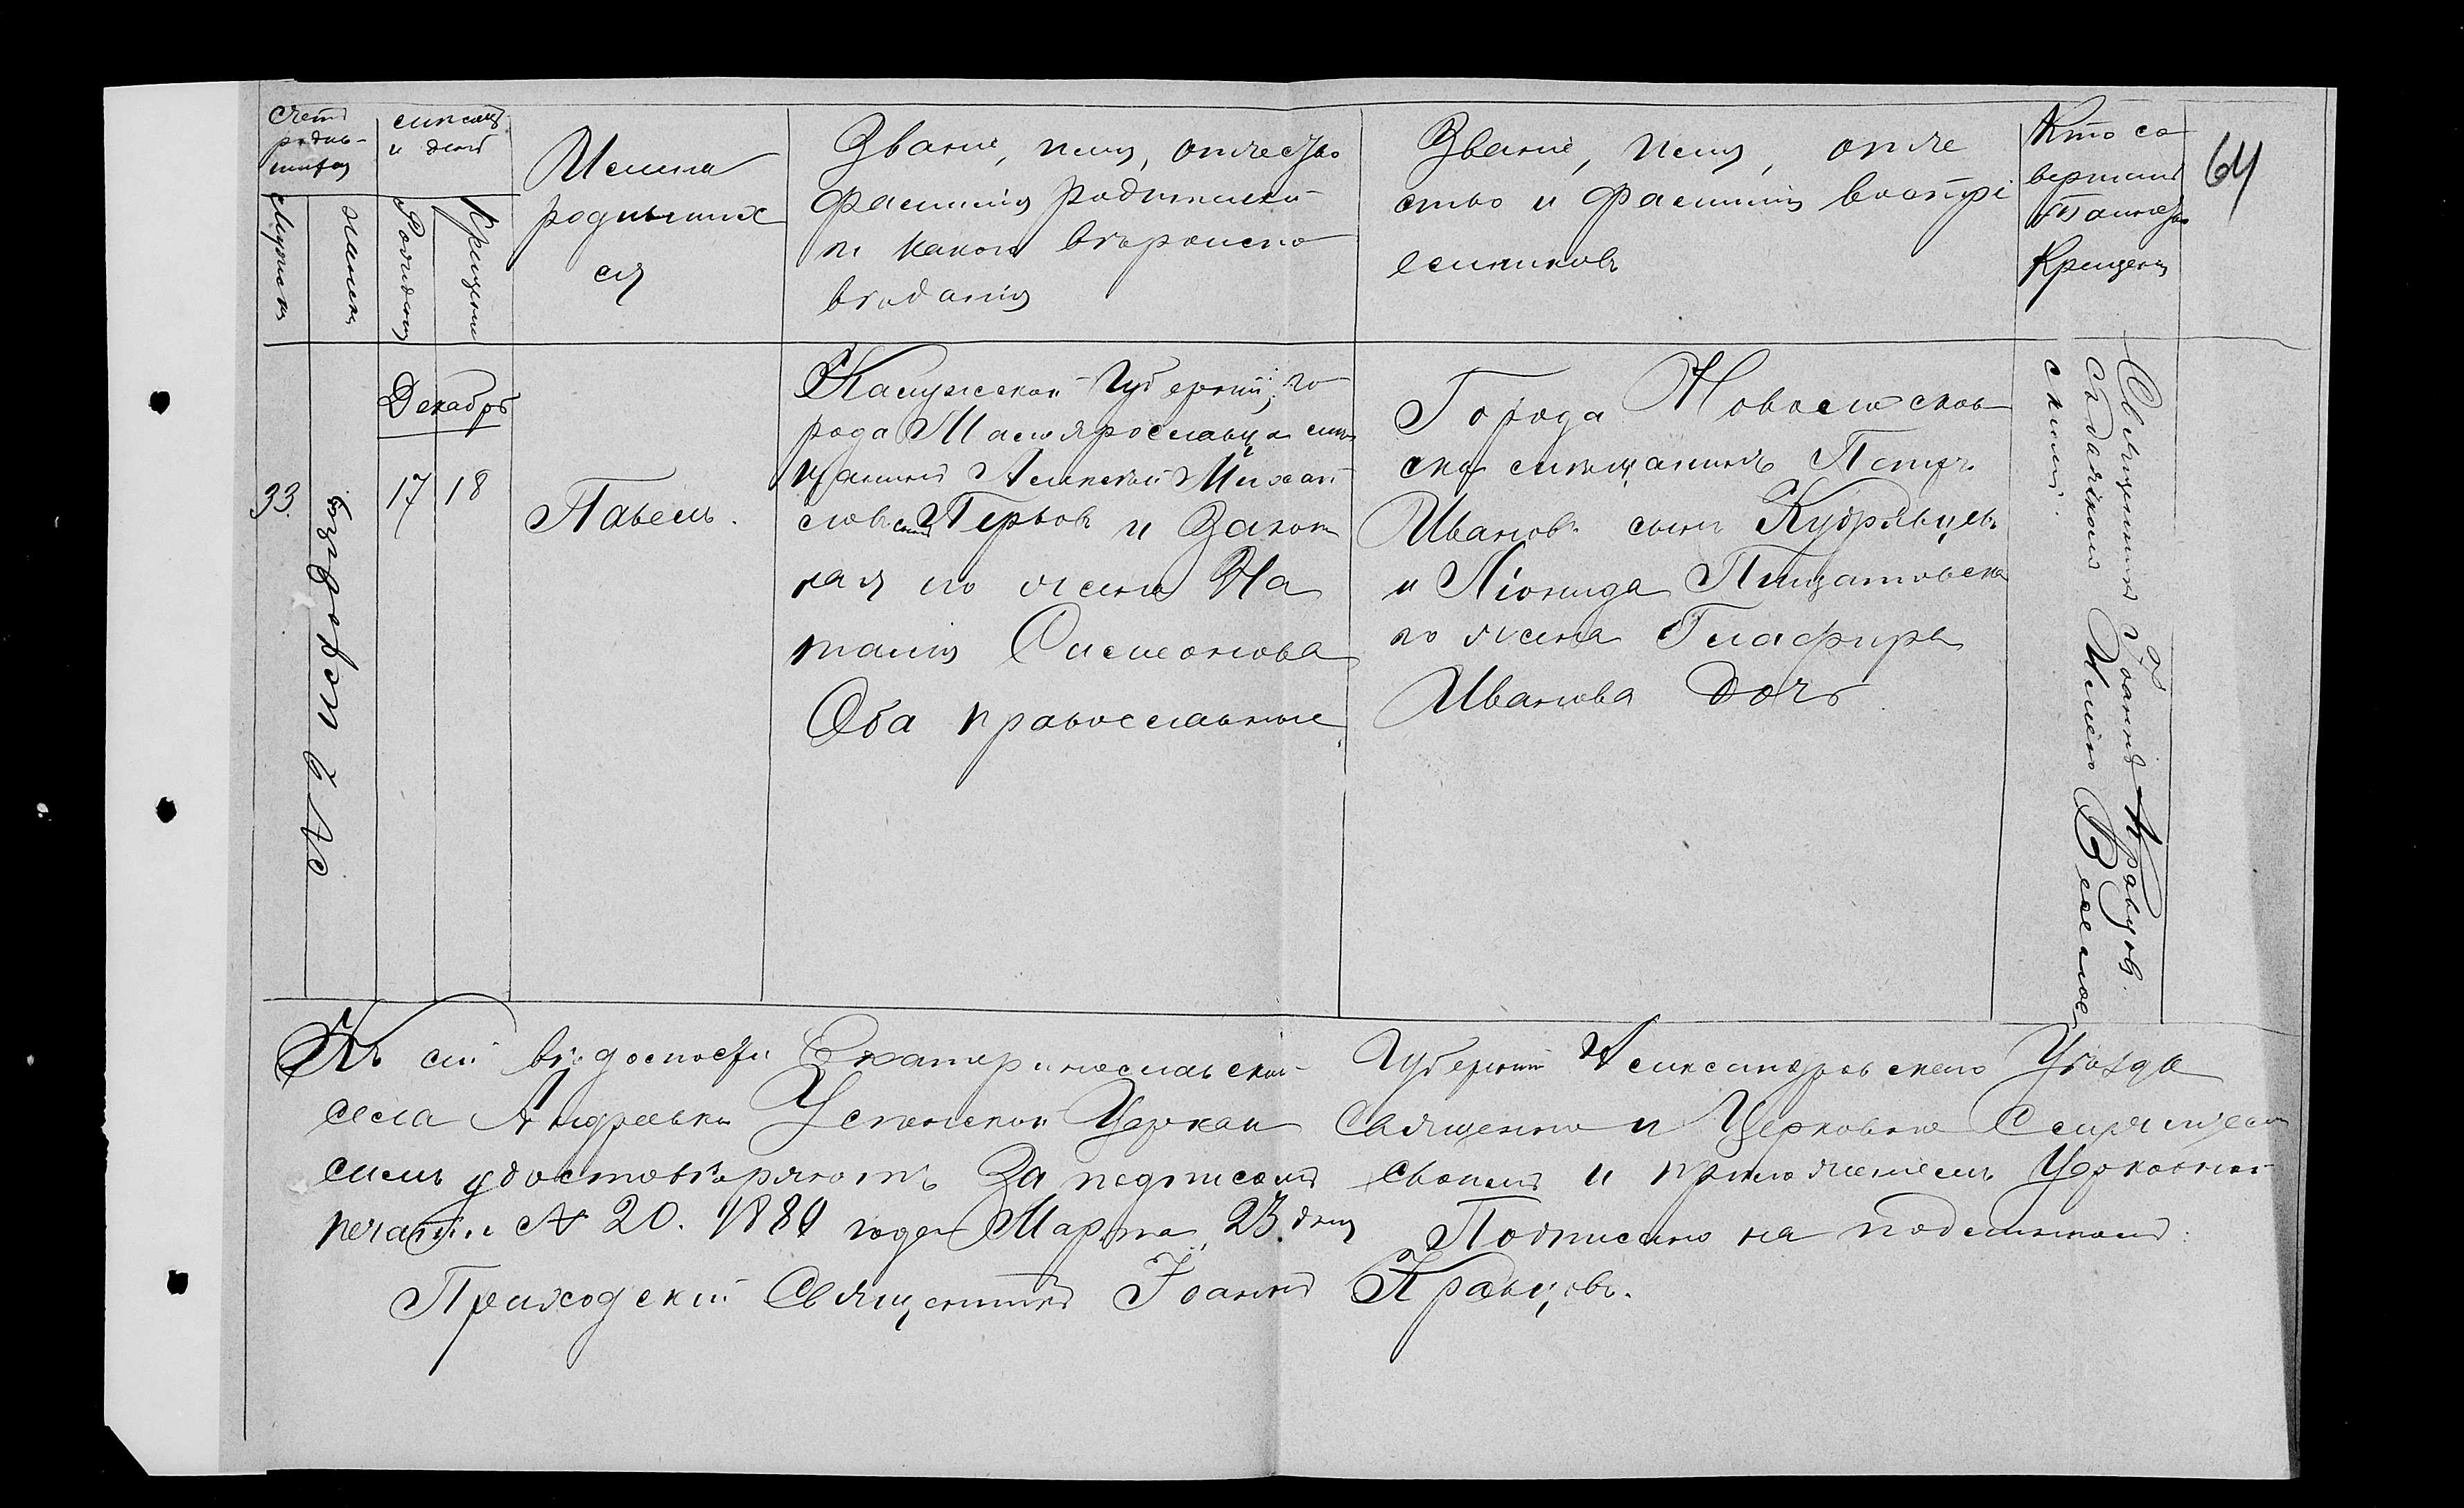 Счетъ родив-
шихся
Мужеска
женска
мѣсяцъ
и день
Рожденія
Крещенія
Имена
родивших
ся
Званіе, имя, отчество
фамилія родителей
и какого вѣроиспо
вѣданія
Званіе, имя, отче
ство и фамилія воспрі
емниковъ
Кто со
вершилъ
Таинство
Крещенія
64
33.
Декабрь
17 18
Павелъ.
Калужской Губерніи, го
рода Малоярославца мѣ
щанинъ Алексѣй Михай
ловъ сынъ Перьовъ и Закон
ная его жена На
талія Симеонова
Оба православные
Города Новомосков
ска мѣщанинъ Петръ
Ивановъ сынъ Кудрявцевъ
и Леонида
го жена Глафира
Иванова дочь
Священникъ Іоаннъ Кравцовъ.
съ дьячкомъ
скимъ.
Къ сей вѣдомости Екатеринославской Губерніи Александровскаго Уѣзда
села Андреевки Успенской Церкви Священно и Церковно Служители
симъ удостовѣряютъ За подписомъ своимъ и приложеніемъ Церковной
печати. № 20. 1881 года Марта 23. дня Подписано на подлинномъ:
Приходскій Священникъ Іоаннъ Кравцовъ.